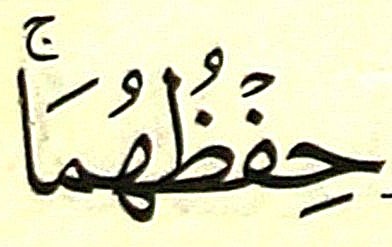 حِفۡظُهُمَاۚ